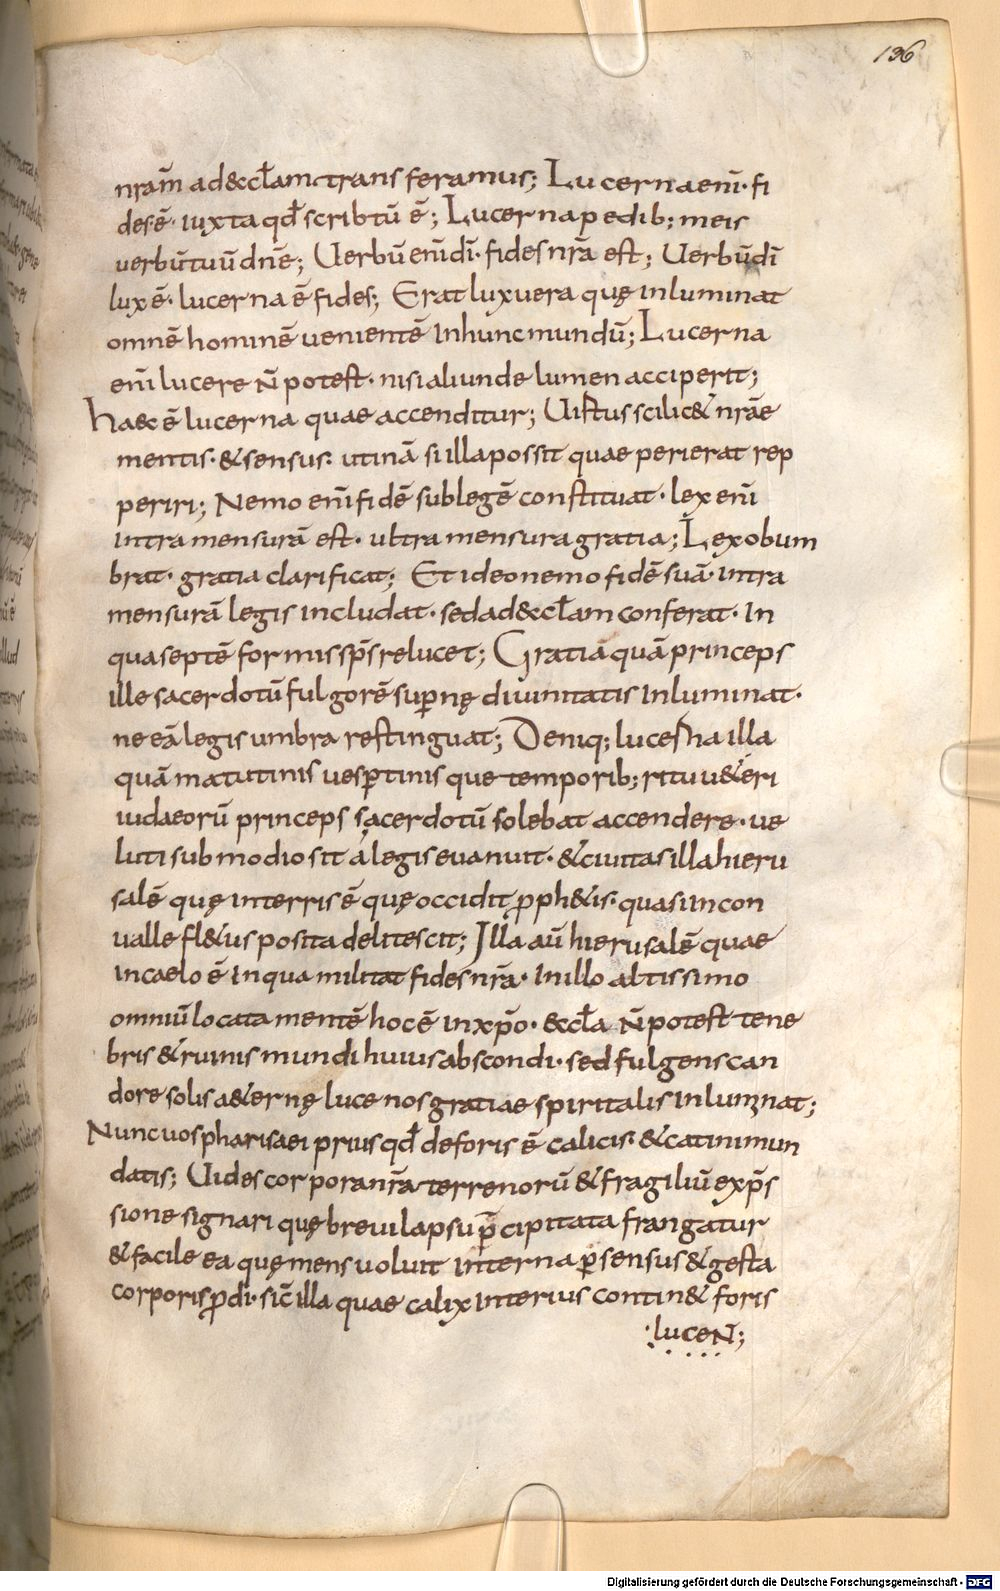 136
nr̄am̄ ad&cl̄am trans feramus; Lucerna eni̅· fi
des· ē· iuxta qd̄ scribtū ē; Lucerna pedib; meis
uerbūtuū dn̄e; Uerbū eni̅ di̅· fides nr̄a est; Uerbū di̅
lux ē· lucerna ē fides; Erat lux uera quę inluminat
omnē hominē uenientē in hunc mundū; Lucerna
eni̅ lucere n̄ potest· nisi aliunde lumen acciperit;
haec ē lucerna quae accenditur; Uistus scilic& nr̄ae
mentis· & sensus· utinā si illa possit quae perierat rep
periri; Nemo eni̅ fidē sub legē constituat· lex eni̅
intra mensurā est· ultra mensura gratia; Lex obum
brat· gratia clarificat; Et ideo nemo fidē suā· intra
mensurā legis includat· sed ad &cl̄am conferat· In
qua septē formis sp̄s relucet; Gratiā quā princeps
ille sacerdotū fulgorē sup̄nę diuinitatis inluminat·
ne eā legis umbra restinguat; Deniq; lucerna illa
quā matutinis uesp̄tinis que temporib; ritu u&eri
iudaeorū princeps sacerdotū solebat accendere· ue
luti sub modio sit a legis euanuit· & ciuitas illa hieru
salē quę in terris ē quę occidit p̄ph&is· quasi in con
ualle fl&us posita delitescit; Illa au̅ hierusalē quae
in caelo ē in qua militat fides nr̄a· In illo altissimo
omniū locata mentē hoc ē in xp̄o· &cl̄a n̄ potest tene
bris & ruinis mundi huius abscondi· sed fulgens can
dore solis a&ernę luce nos gratiae spiritalis inluminat;
Nunc uos pharisaei prius qd̄ deforis ē calicis· & catini mun
datis; Uides corpora nr̄a terrenorū & fragiliū exp̄s
sione signari quę breui lapsu p̄cipitata frangatur
& facile ea quę mens uoluit interna p̄ sensus & gesta
corporis p̄di· sic̄ illa quae calix interius contin& foris
lucen̄;
Digitalisierung gefördert durch die Deutsche Forschungsgemeinschaft - DFG